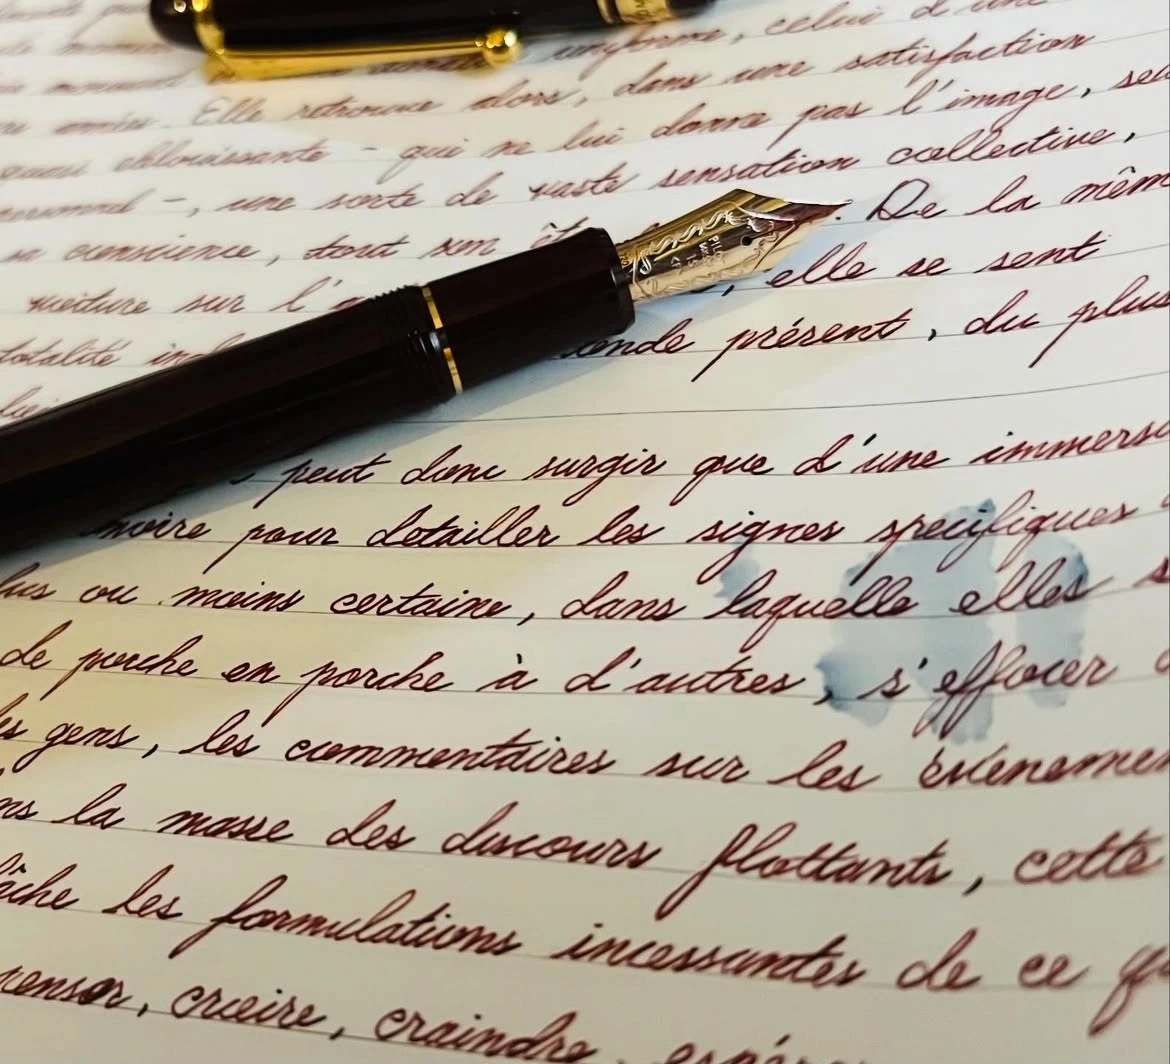 uniforme, celui d'une
Elle retrouve alors, dans une satisfaction
quasi éblouissante - qui ne lui donne pas l'image, seul
personnel -, une sorte de vaste sensation collective,
sa conscience, tout son êt . De la mêm
voiture sur l'a , elle se sent
totalité ind onde présent, du plus
peut donc surgir que d'une immersi
moire pour détailler les signes spécifiques
lus ou moins certaine, dans laquelle elles s
de proche en proche à d'autres, s'efforcer d
les gens, les commentaires sur les événemen
ns la masse des discours flottants, cette
âche les formulations incessantes de ce qu
penser, croire, craindre, espére